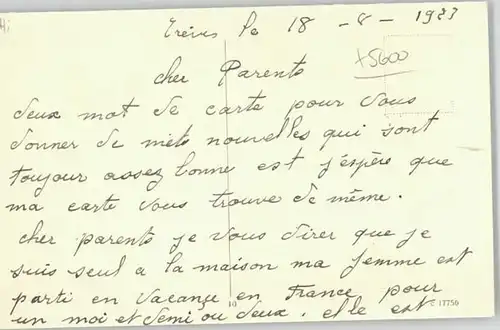 Trèves le 18 - 8 - 1923
+5600
cher Parents
deux mot de carte pour vous
donner de mets nouvelles qui sont
toujour assez bonne est j'espère que
ma carte vous trouve de même.
cher parents je vous direr que je
suis seul a la maison ma femme est
parti en vacance en France pour
10 17756
un moi et demi ou deux. elle est